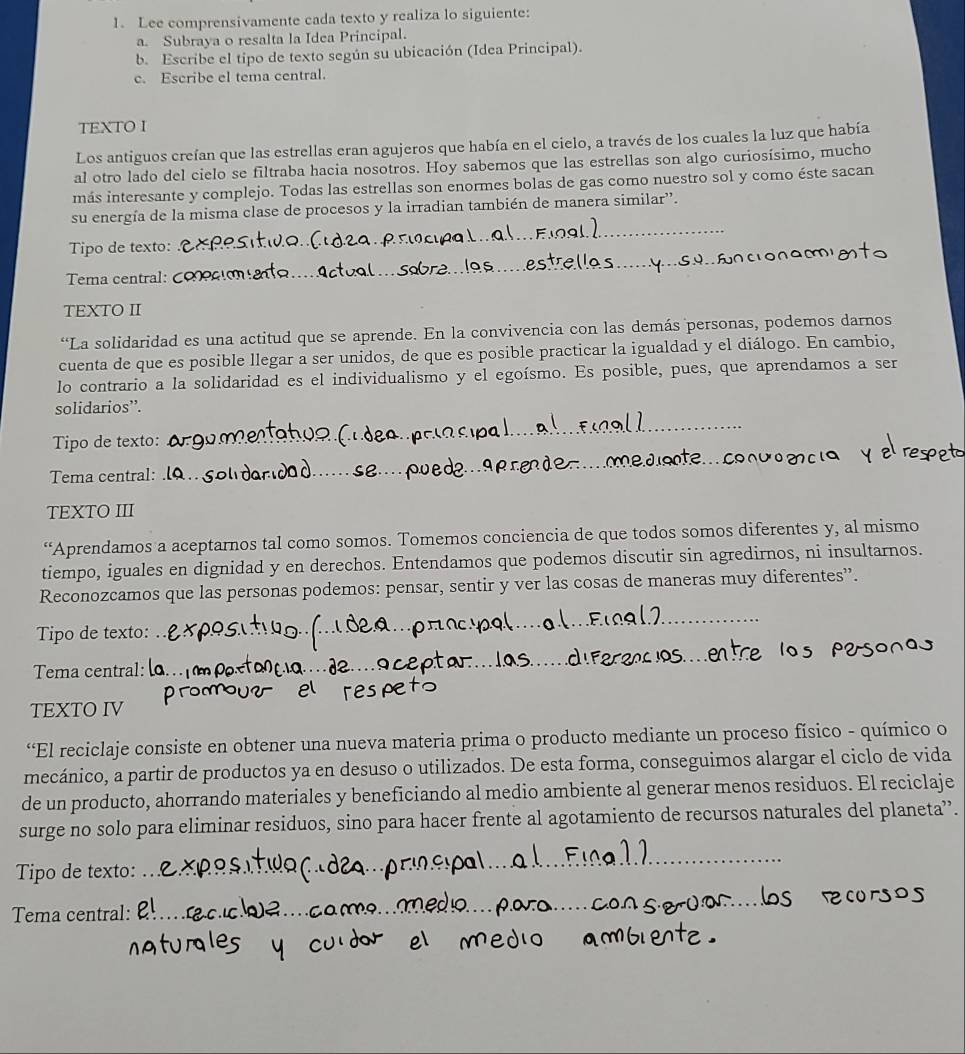 1. Lee comprensivamente cada texto y realiza lo siguiente:
a. Subraya o resalta la Idea Principal.
b. Escribe el tipo de texto según su ubicación (Idea Principal).
c. Escribe el tema central.
TEXTO I
Los antiguos creían que las estrellas eran agujeros que había en el cielo, a través de los cuales la luz que había
al otro lado del cielo se filtraba hacia nosotros. Hoy sabemos que las estrellas son algo curiosísimo, mucho
más interesante y complejo. Todas las estrellas son enormes bolas de gas como nuestro sol y como éste sacan
su energía de la misma clase de procesos y la irradian también de manera similar”.
Tipo de texto: expositivo (idea principal al Final)
Tema central: conocimiento actual sobre las estrellas y su funcionamiento
TEXTO II
“La solidaridad es una actitud que se aprende. En la convivencia con las demás personas, podemos darnos
cuenta de que es posible llegar a ser unidos, de que es posible practicar la igualdad y el diálogo. En cambio,
lo contrario a la solidaridad es el individualismo y el egoísmo. Es posible, pues, que aprendamos a ser
solidarios”.
Tipo de texto: argumentativo (idea principal al Final)
Tema central: la solidaridad se puede aprender mediante convivencia y el respeto
TEXTO III
“Aprendamos a aceptarnos tal como somos. Tomemos conciencia de que todos somos diferentes y, al mismo
tiempo, iguales en dignidad y en derechos. Entendamos que podemos discutir sin agredirnos, ni insultarnos.
Reconozcamos que las personas podemos: pensar, sentir y ver las cosas de maneras muy diferentes”.
Tipo de texto: expositivo (idea principal al Final)
Tema central: la importancia de aceptar las diferencias entre los personas
promover el respeto
TEXTO IV
“El reciclaje consiste en obtener una nueva materia prima o producto mediante un proceso físico - químico o
mecánico, a partir de productos ya en desuso o utilizados. De esta forma, conseguimos alargar el ciclo de vida
de un producto, ahorrando materiales y beneficiando al medio ambiente al generar menos residuos. El reciclaje
surge no solo para eliminar residuos, sino para hacer frente al agotamiento de recursos naturales del planeta”.
Tipo de texto: expositivo (idea principal al Final)
Tema central: el reciclaje como medio para conservar los recorsos
naturales y cuidar el medio ambiente.